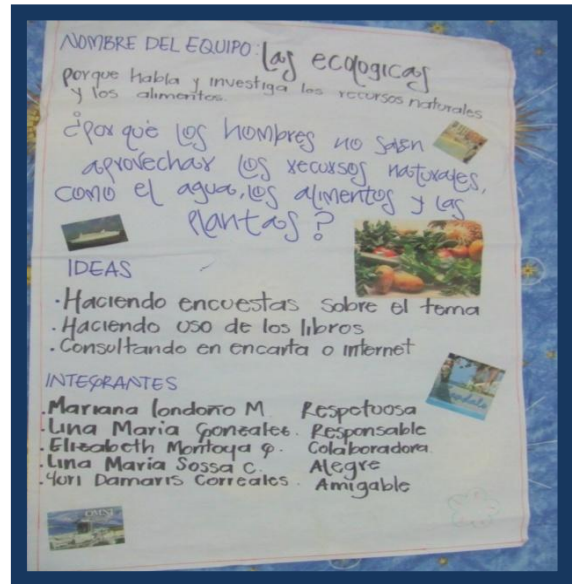 NOMBRE DEL EQUIPO: las ecologicas
porque habla y investiga los recursos naturales
y los alimentos.
¿por qué los hombres no saben
aprovechar los recursos naturales,
como el agua, los alimentos y las
plantas?
IDEAS
· Haciendo encuestas sobre el tema
· Haciendo uso de los libros
· Consultando en encarta o internet
INTEGRANTES
· Mariana londoño M. Respetuosa
· Lina Maria Gonzales. Responsable
· Elizabeth Montoya φ. Colaboradora.
· Lina Maria Sossa c. Alegre
· Yuri Damaris Correales. Amigable